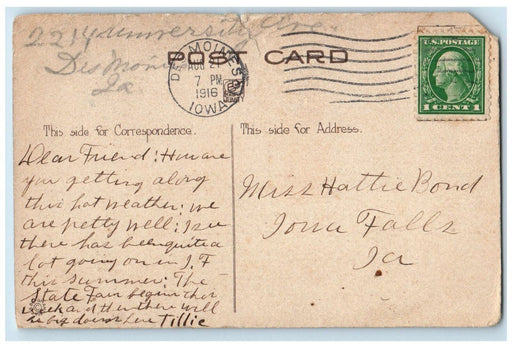 2214 University Ave
Des Moines
Ia
POST CARD
DES MOINES
AUG 21
7 PM
1916
IOWA
U.S. POSTAGE
1 CENT 1
This side for Correspondence.
This side for Address.
Dear Friend: How are
you getting along
this hot weather; we
are pretty well; I see
there has been quite a
lot going on in I.F
this summer: The
State Fair begins this
week and then there will
be big doings Love Tillie
Miss Hattie Bond
Iowa Falls
Ia